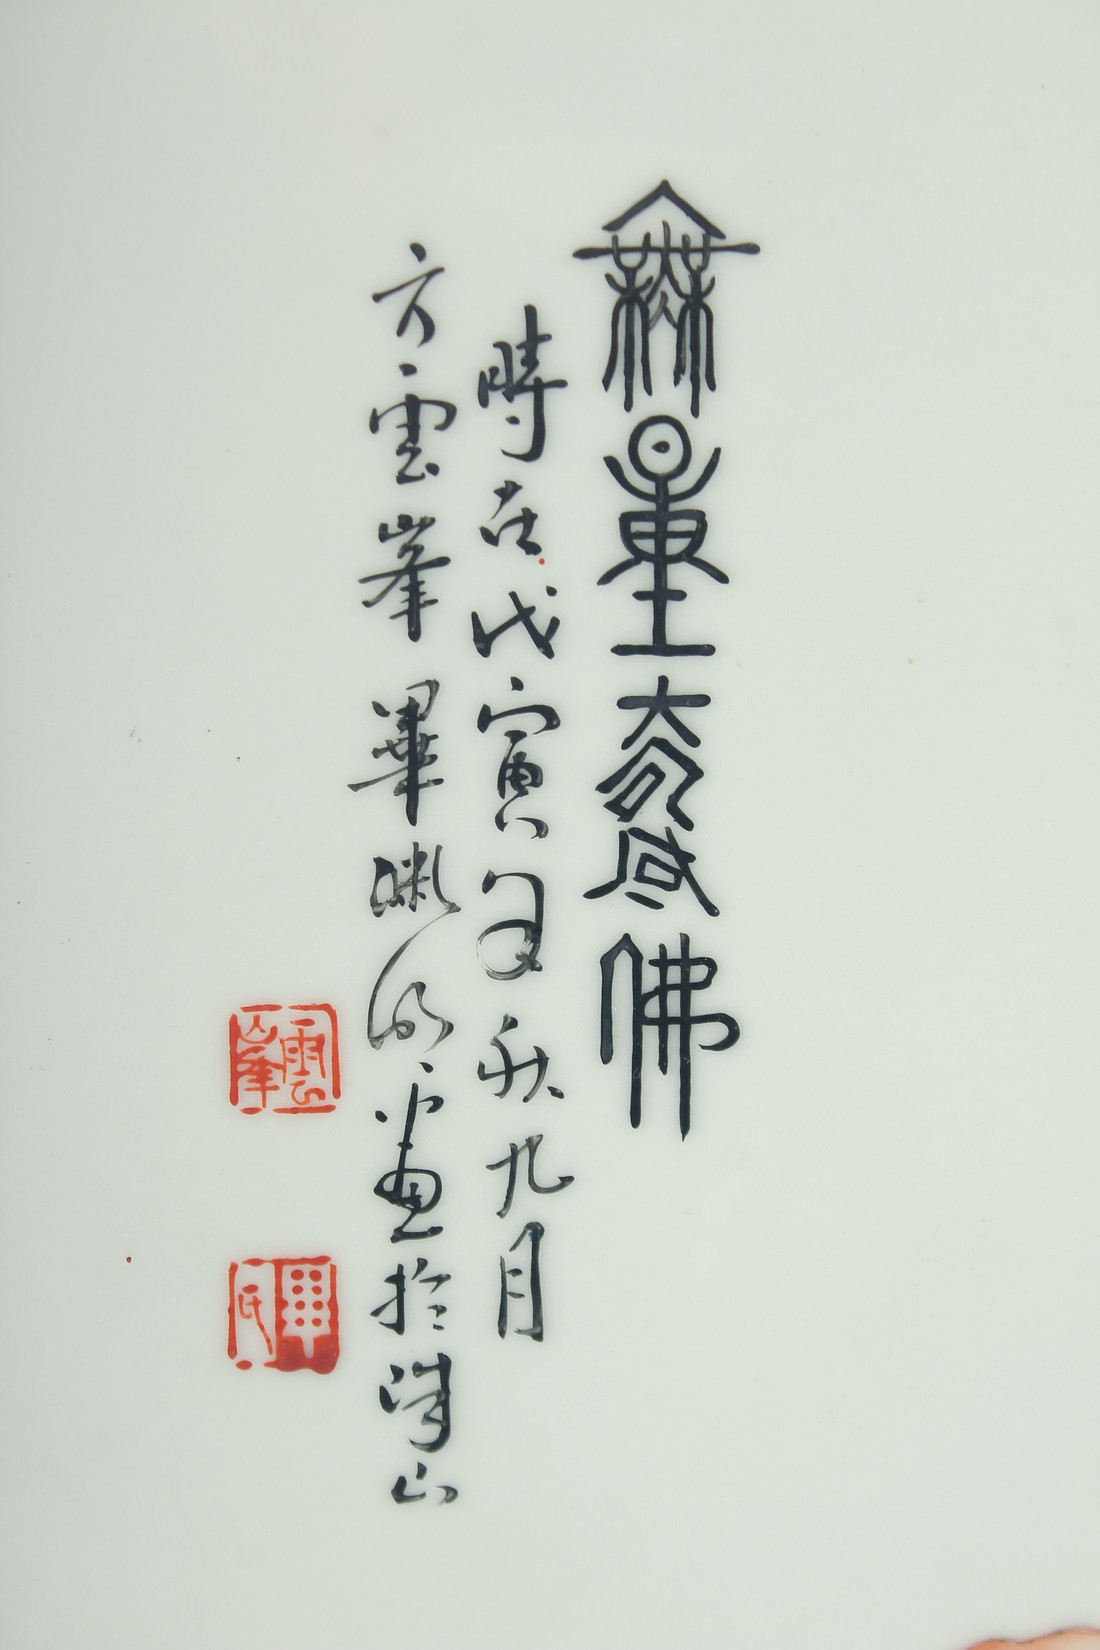 無量壽佛
時在戊寅年秋九月
方雲峯畢淵明畫於珠山
雲峯
畢氏